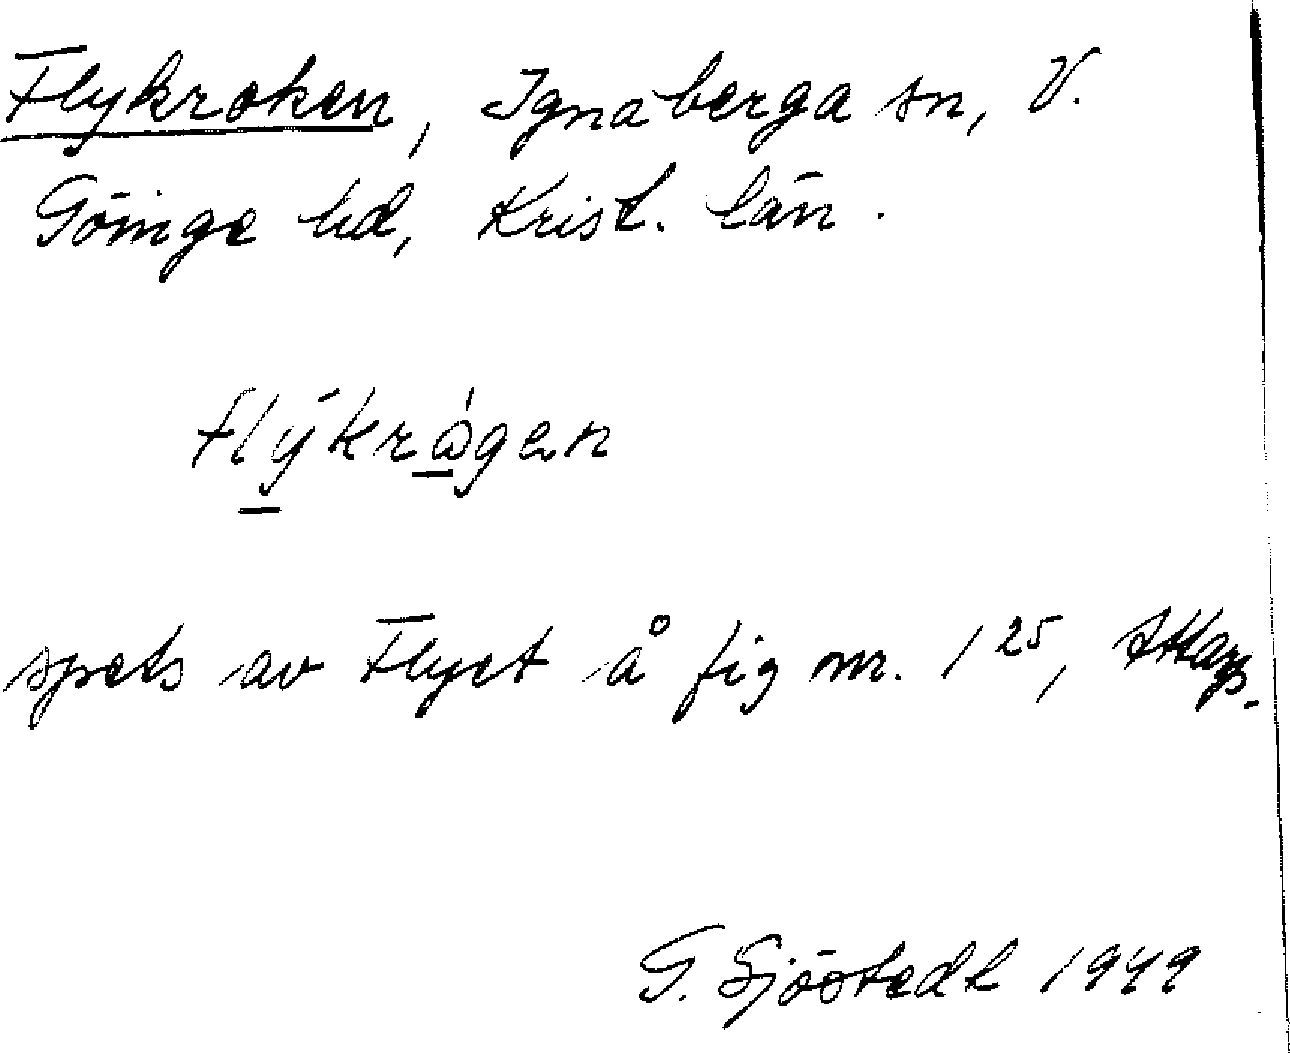 Flykroken, Ignaberga sn, V.
Göinge hd, Krist. län.
flýkrǻgen
spets av Flyet å fig nr. 1²⁵,
G. Sjöstedt 1949